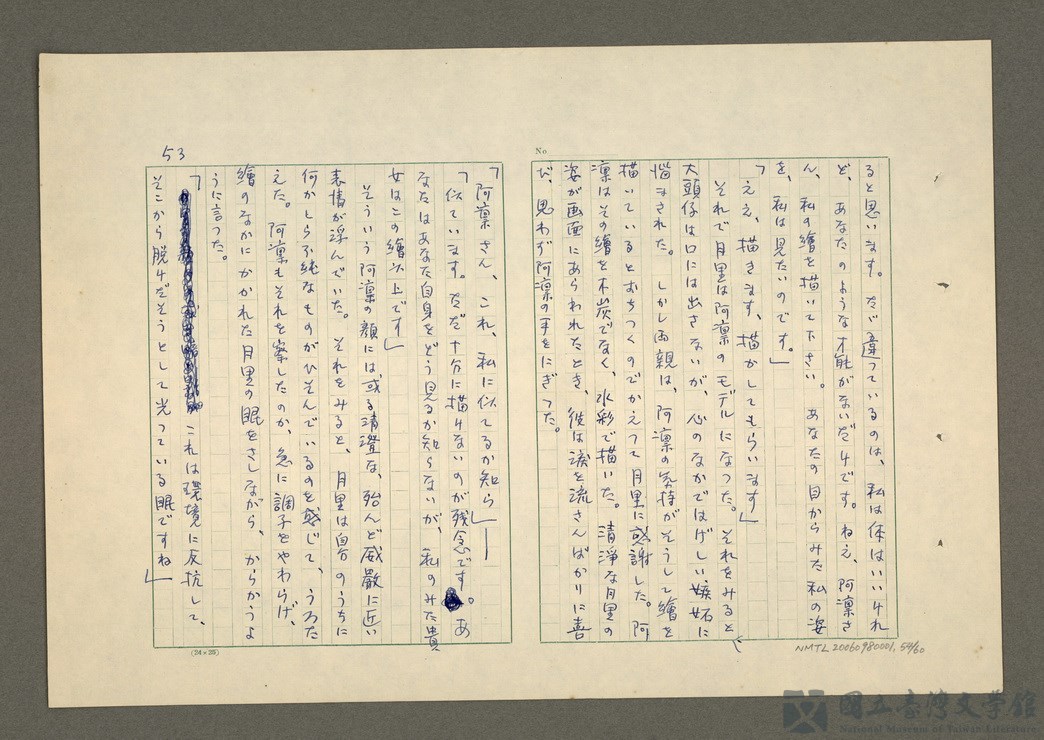 No
ると思います。ただ違っているのは、私は体はいいけれ
ど、あなたのような才能がないだけです。ねえ、阿凛さ
ん、私の繪を描いて下さい。あなたの目からみた私の姿
を、私は見たいのです。」
「ええ、描きます、描かしてもらいます」
それで月里は阿凛のモデルになった。それをみると
大頭仔は口には出さないが、心のなかではげしい嫉妬に
惱まされた。しかし両親は、阿凛の気持がそうして繪を
描いているとおちつくのでかえって月里に感謝した。阿
凛はその繪を木炭でなく、水彩で描いた。清淨な月里の
姿が画面にあらわれたとき、彼は淚を流さんばかりに喜
び、思わず阿凛の手をにぎった。
53
「阿凛さん、これ、私に似てるか知ら」——
「似ています。ただ十分に描けないのが残念です。あ
なたはあなた自身をどう見るか知らないが、私のみた貴
女はこの繪以上です」
そういう阿凛の顔には、或る清澄な、殆んど威嚴に近い
表情が浮んでいた。それをみると、月里は自分のうちに
何かしら不純なものがひそんでいるのを感じて、うろた
えた。阿凛もそれを察したのか、急に調子をやわらげ、
繪のなかにかかれた月里の眼をさしながら、からかうよ
うに言った。
「これは環境に反抗して、
そこから脱けだそうとして光っている眼ですね」
(24×25)
NMTL20060980001, 54/60
國立臺灣文学館
National Museum of Taiwan Literature